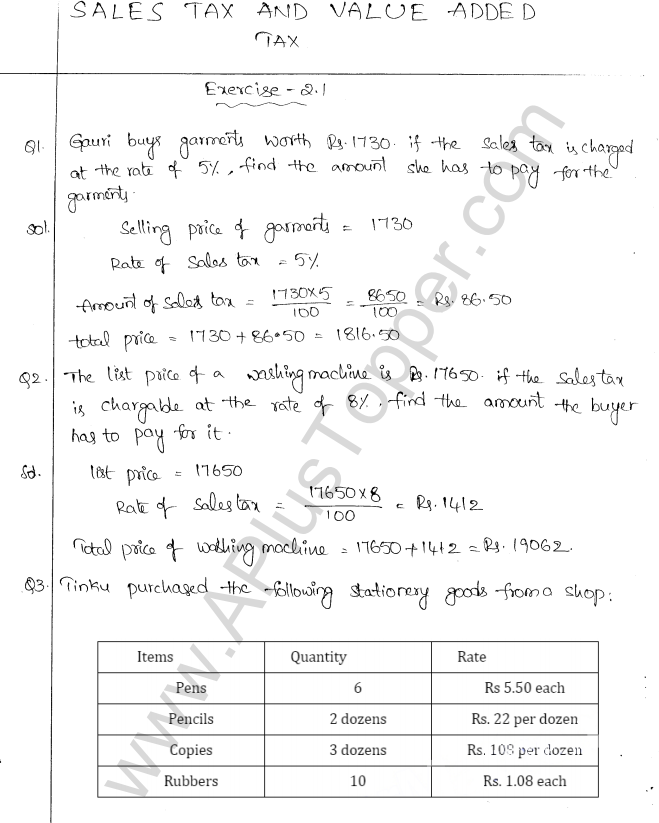 SALES TAX AND VALUE ADDED
TAX
Exercise - 2.1
Q1. Gauri buys garments worth Rs. 1730. if the sales tax is charged
at the rate of 5%, find the amount she has to pay for the
garments.
Sol. Selling price of garments = 1730
Rate of Sales tax = 5%
Amount of Sales tax = 1730×5/100 = 8650/100 = Rs. 86.50
total price = 1730 + 86.50 = 1816.50
Q2. The list price of a washing machine is Rs. 17650. if the Sales tax
is chargable at the rate of 8%, find the amount the buyer
has to pay for it.
Sol. list price = 17650
Rate of Sales tax = 17650×8/100 = Rs. 1412
Total price of washing machine = 17650 + 1412 = Rs. 19062.
Q3. Tinku purchased the following stationery goods from a shop:
Items Quantity Rate
Pens 6 Rs 5.50 each
Pencils 2 dozens Rs. 22 per dozen
Copies 3 dozens Rs. 108 per dozen
Rubbers 10 Rs. 1.08 each
www.APlusTopper.com